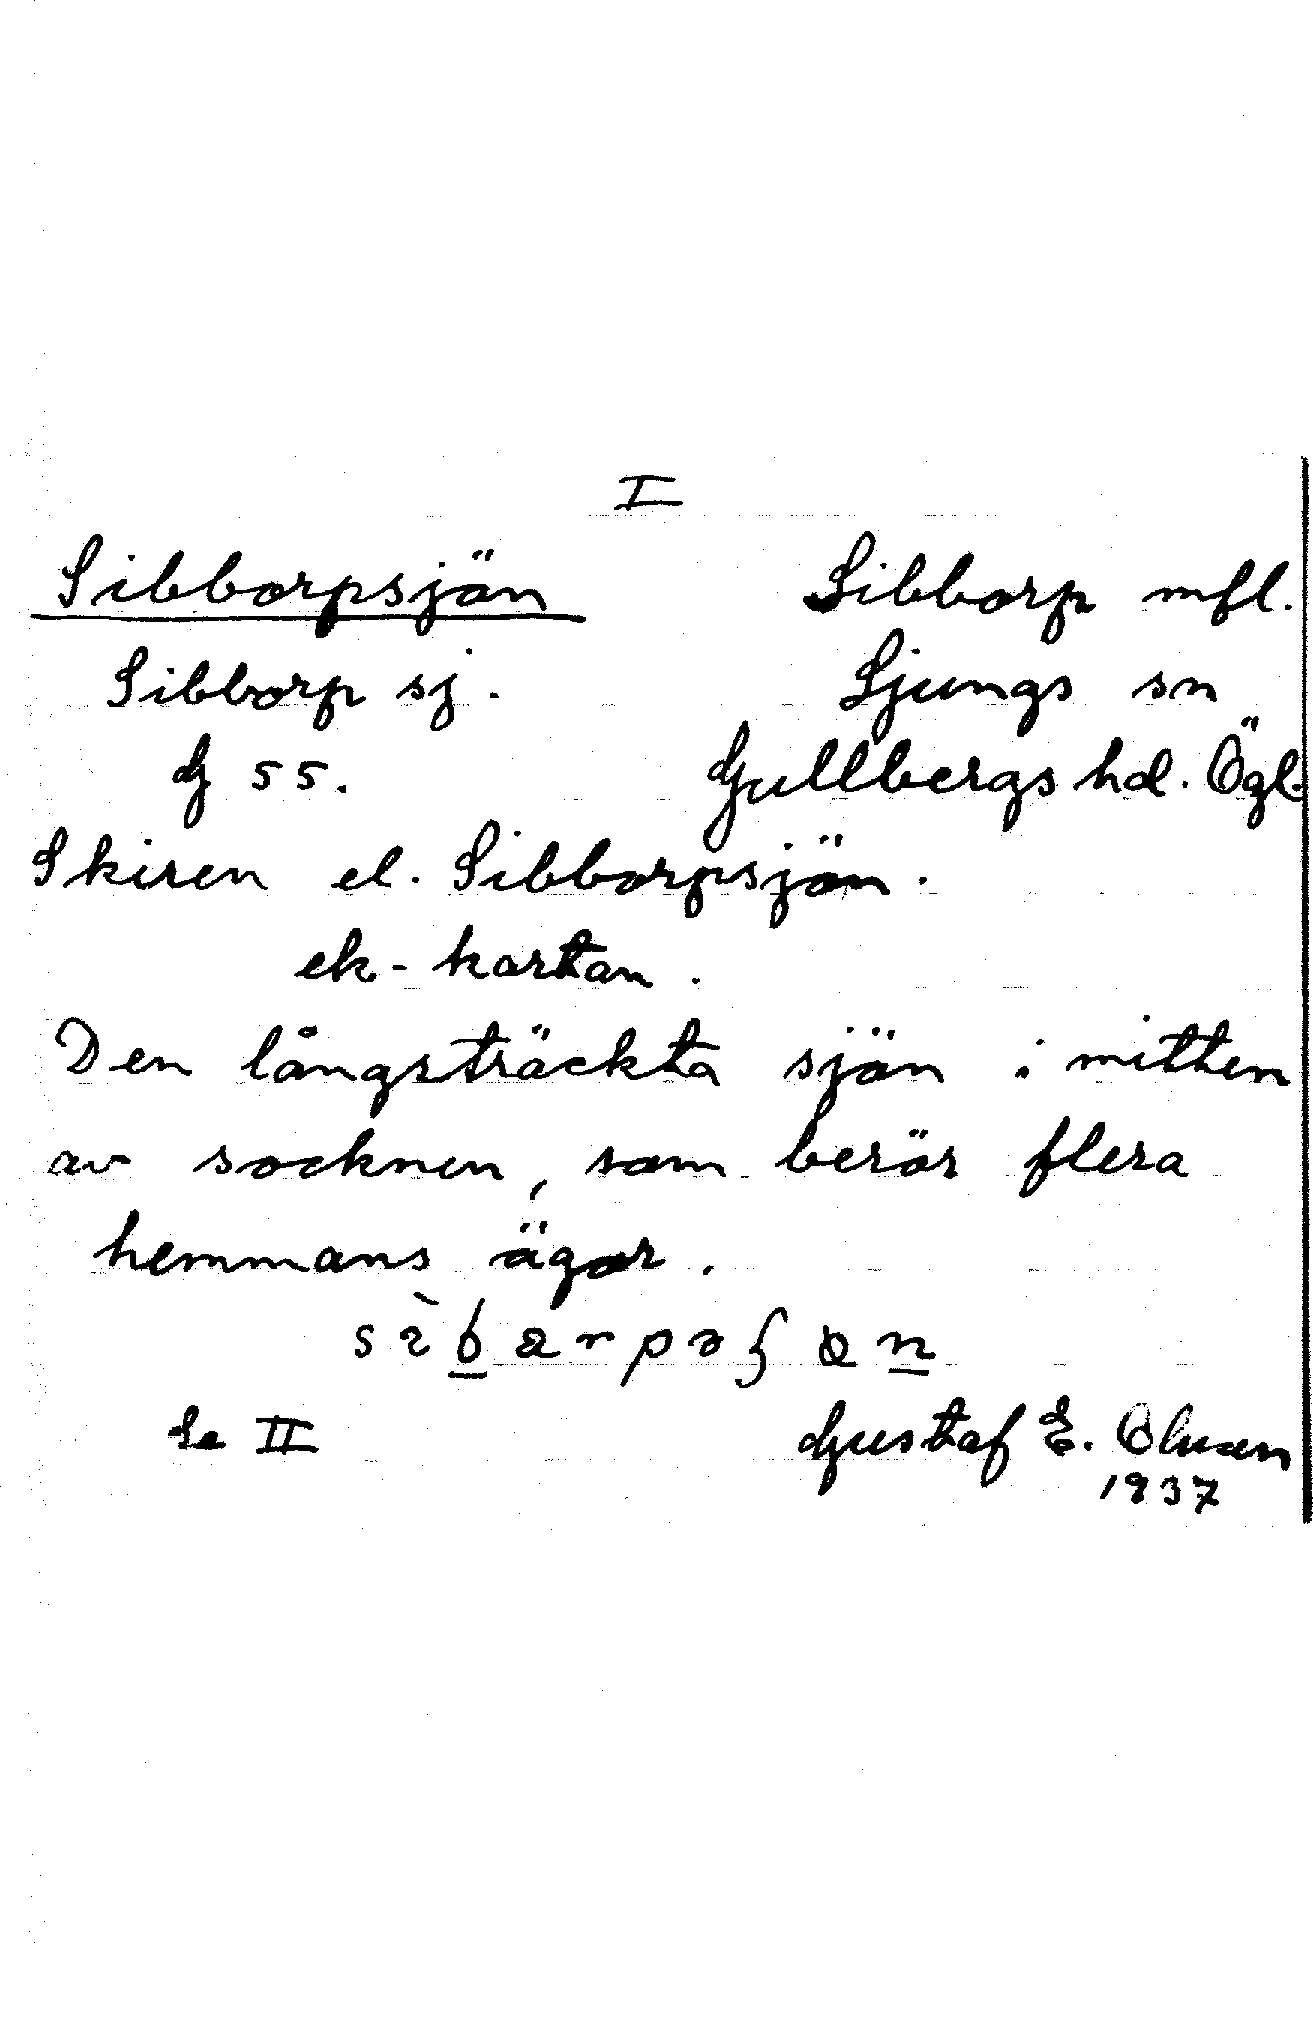 I
Sibborpsjön Sibborp mfl.
Sibborp sj. Ljungs sn
G 55. Gullbergs hd. Ögl.
Skiren el. Sibborpsjön.
ek-kartan.
Den långsträckta sjön i mitten
av socknen, som berör flera
hemmans ägor.
Se II Gustaf E.
1937